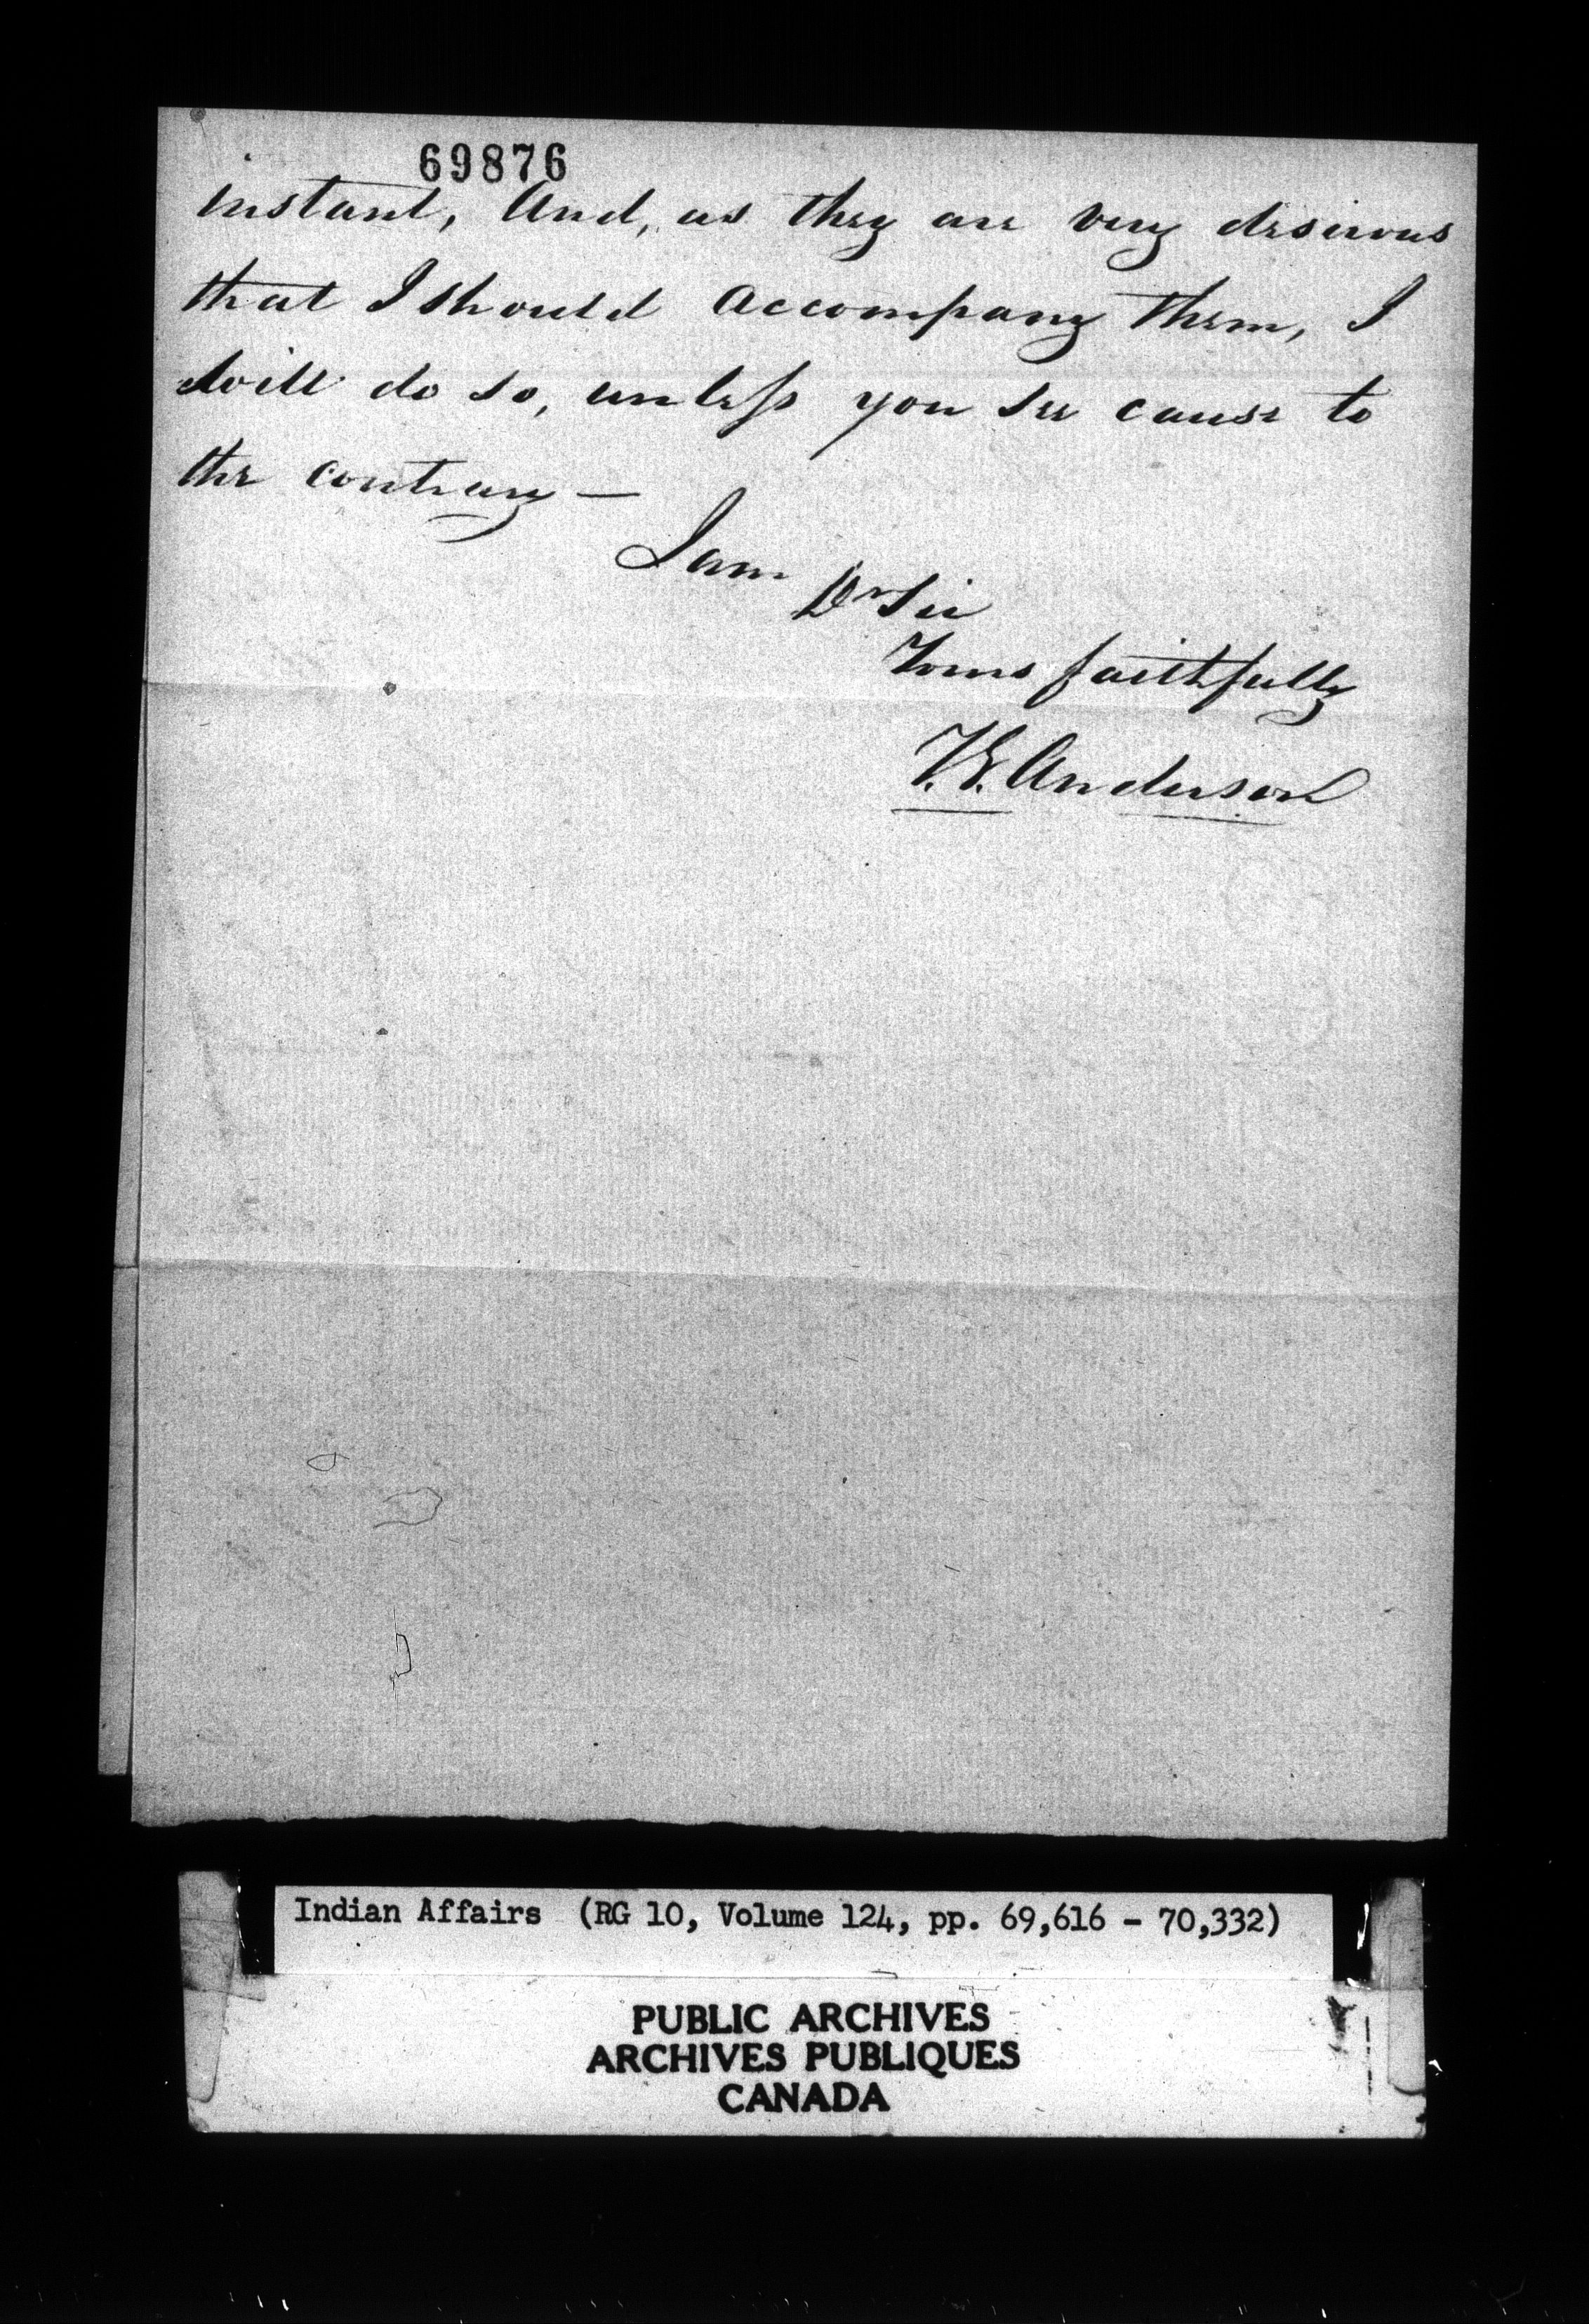 69876
instant, And, as they are very desirous
that I should accompany them, I
will do so, unless you see cause to
the contrary —
I am
Dr Sir
Yours faithfully
T. G. Anderson
Indian Affairs (RG 10, Volume 124, pp. 69,616 - 70,332)
PUBLIC ARCHIVES
ARCHIVES PUBLIQUES
CANADA